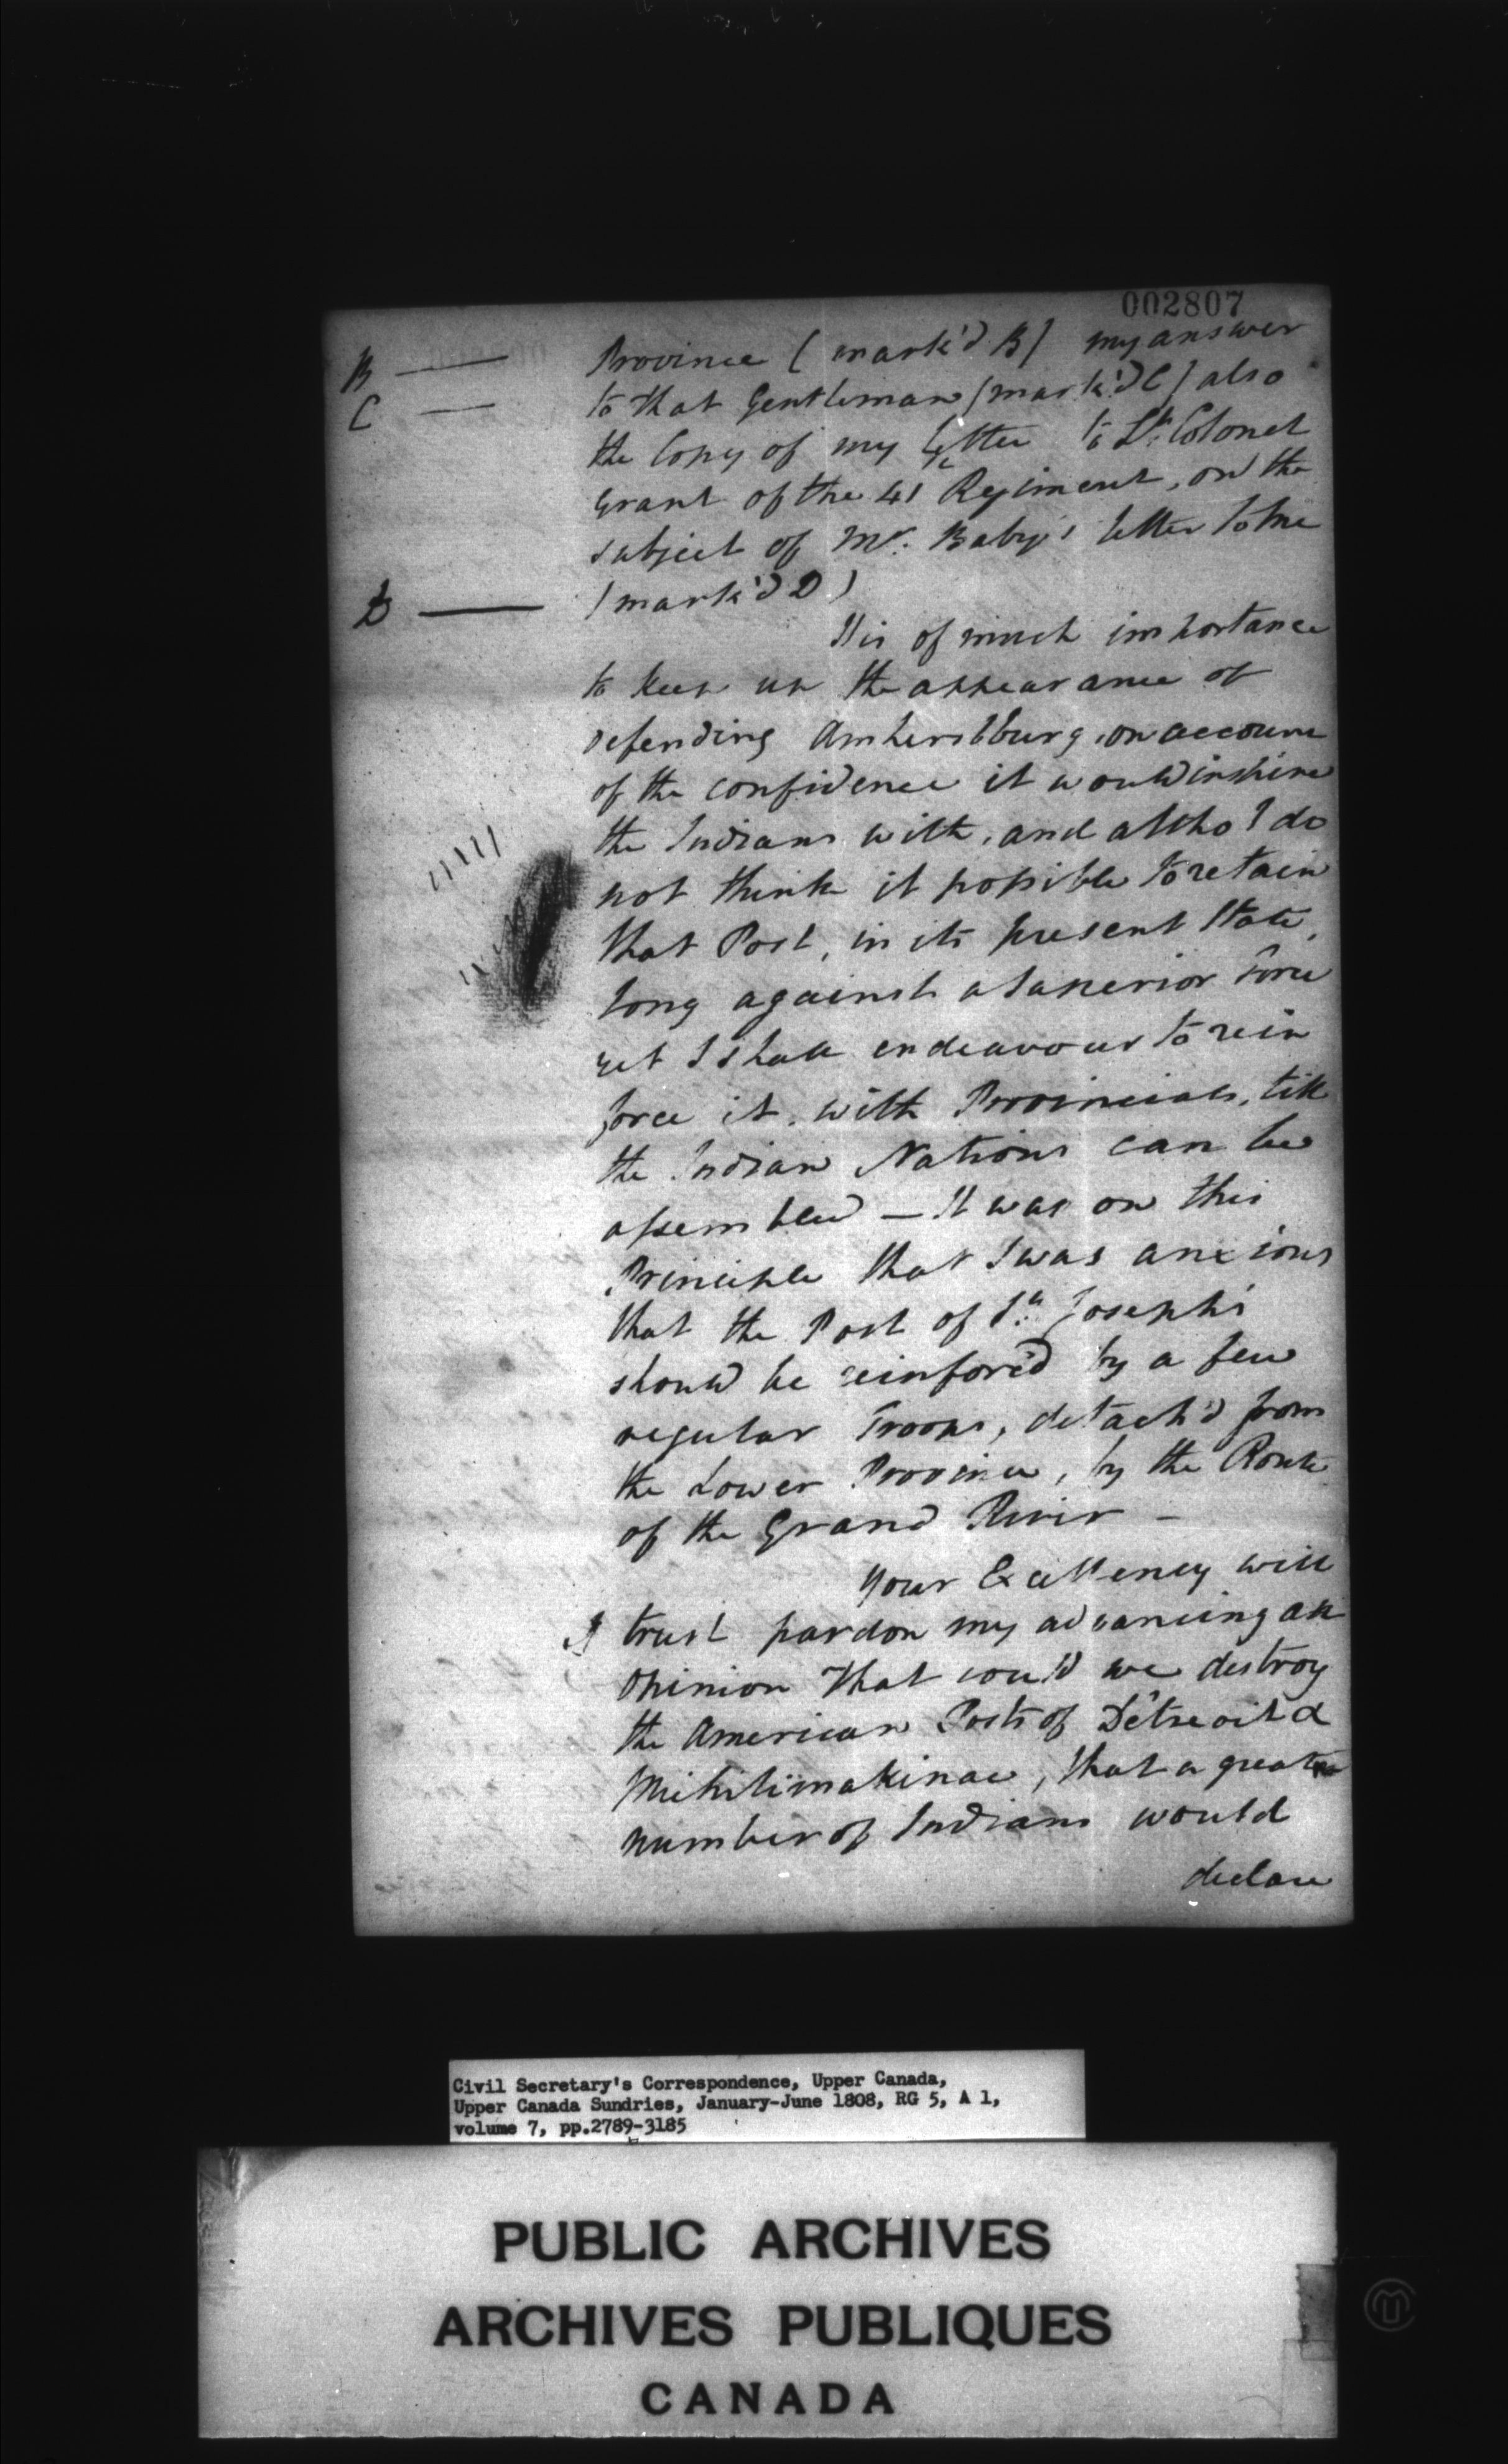 002807
B — Province (mark'd B) my answer
C — to that Gentleman (mark'd C) also
the Copy of my letter to Lt. Colonel
Grant of the 41st Regiment, on the
subject of Mr. Baby's letter to me
D — (mark'd D)
It is of much importance
to keep up the appearance of
defending Amherstburg, on account
of the confidence it would inspire
the Indians with, and altho' I do
not think it possible to retain
that Post, in its present State,
long against a Superior Force
yet I shall endeavour to rein
force it, with Provincials, till
the Indian Nations can be
assembled — It was on this
Principle that I was anxious
that the Post of St. Joseph's
should be reinforc'd by a few
regular Troops, detach'd from
the Lower Province, by the Route
of the Grand River —
Your Excellency will
I trust pardon my advancing an
opinion that cou'd we destroy
the American Posts of Détroit &
Mihilimakinac, that a great
number of Indians would
declare
Civil Secretary's Correspondence, Upper Canada,
Upper Canada Sundries, January-June 1808, RG 5, A 1,
volume 7, pp.2789-3185
PUBLIC ARCHIVES
ARCHIVES PUBLIQUES
CANADA